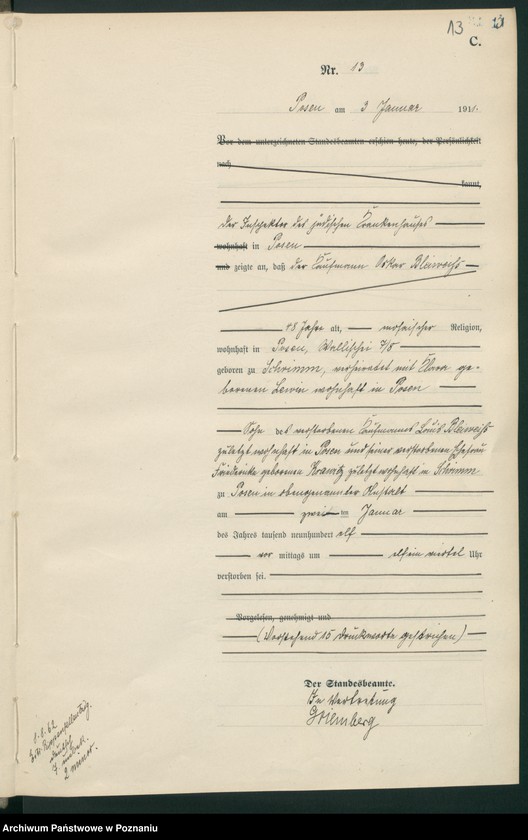 13
C.
Nr. 13
Posen am 3 Januar 1911.
Vor dem unterzeichneten Standesbeamten erschien heute, der Persönlichkeit
nach
kannt,
Der Inspektor des jüdischen Krankenhauses
wohnhaft in Posen
und zeigte an, daß der Kaufmann Oskar
48 Jahre alt, mosaischer Religion,
wohnhaft in Posen, Wallischei 7/8
geboren zu Schrimm, verheiratet mit Klara ge-
borenen Lewin wohnhaft in Posen
Sohn des verstorbenen Kaufmannes Louis
zuletzt wohnhaft in Posen und seiner verstorbenen Ehefrau
Friederike geborenen zuletzt wohnhaft in Schrimm
zu Posen in obengenannter Anstalt
am zweiten Januar
des Jahres tausend neunhundert elf
vor mittags um elf ein viertel Uhr
verstorben sei.
Vorgelesen, genehmigt und
(Vorstehend 15 Druckworte gestrichen)
Der Standesbeamte.
In Vertretung
Archiwum Państwowe w Poznaniu